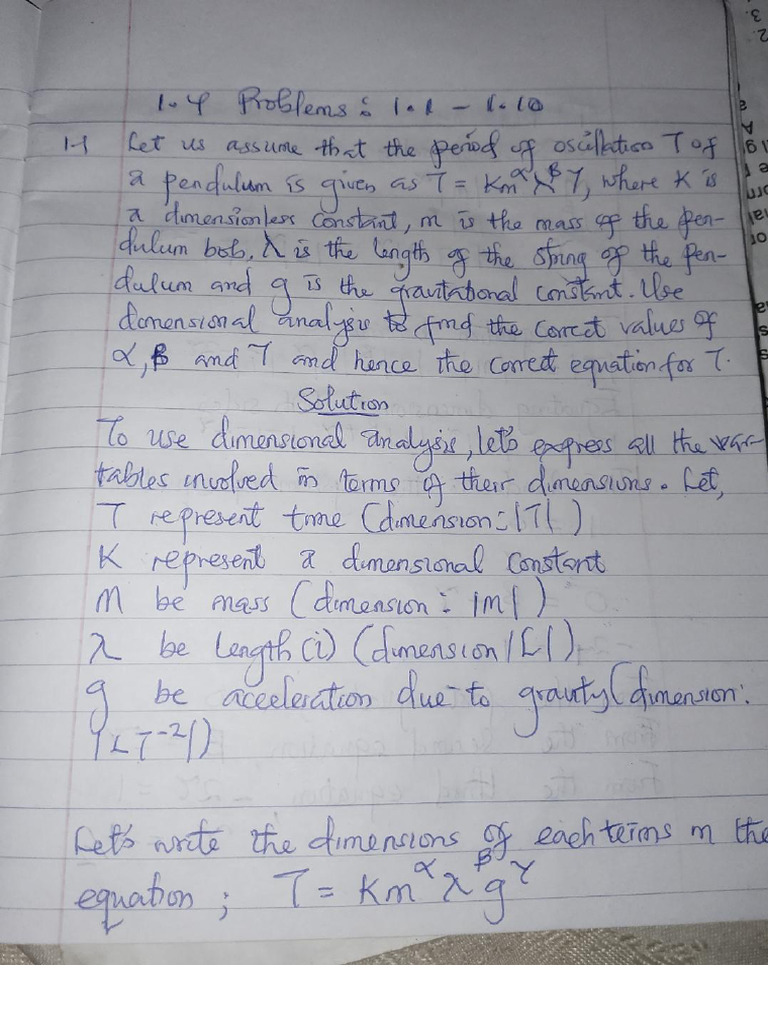 1.4 Problems: 1.1 - 1.10
1.1 Let us assume that the period of oscillation T of
a pendulum is given as T = Km^α λ^β γ, where K is
a dimensionless constant, m is the mass of the pen-
dulum bob, λ is the length of the string of the pen-
dulum and g is the gravitational constant. Use
dimensional analysis to find the correct values of
α, β and T and hence the correct equation for T.
Solution
To use dimensional analysis, let's express all the var-
iables involved in terms of their dimensions. Let,
T represent time (dimension: |T|)
K represent a dimensional constant
M be mass (dimension: |M|)
λ be length (i) (dimension |L|)
g be acceleration due to gravity (dimension:
|LT^-2|)
Let's write the dimensions of each terms in the
equation; T = Km^α λ^β g^γ